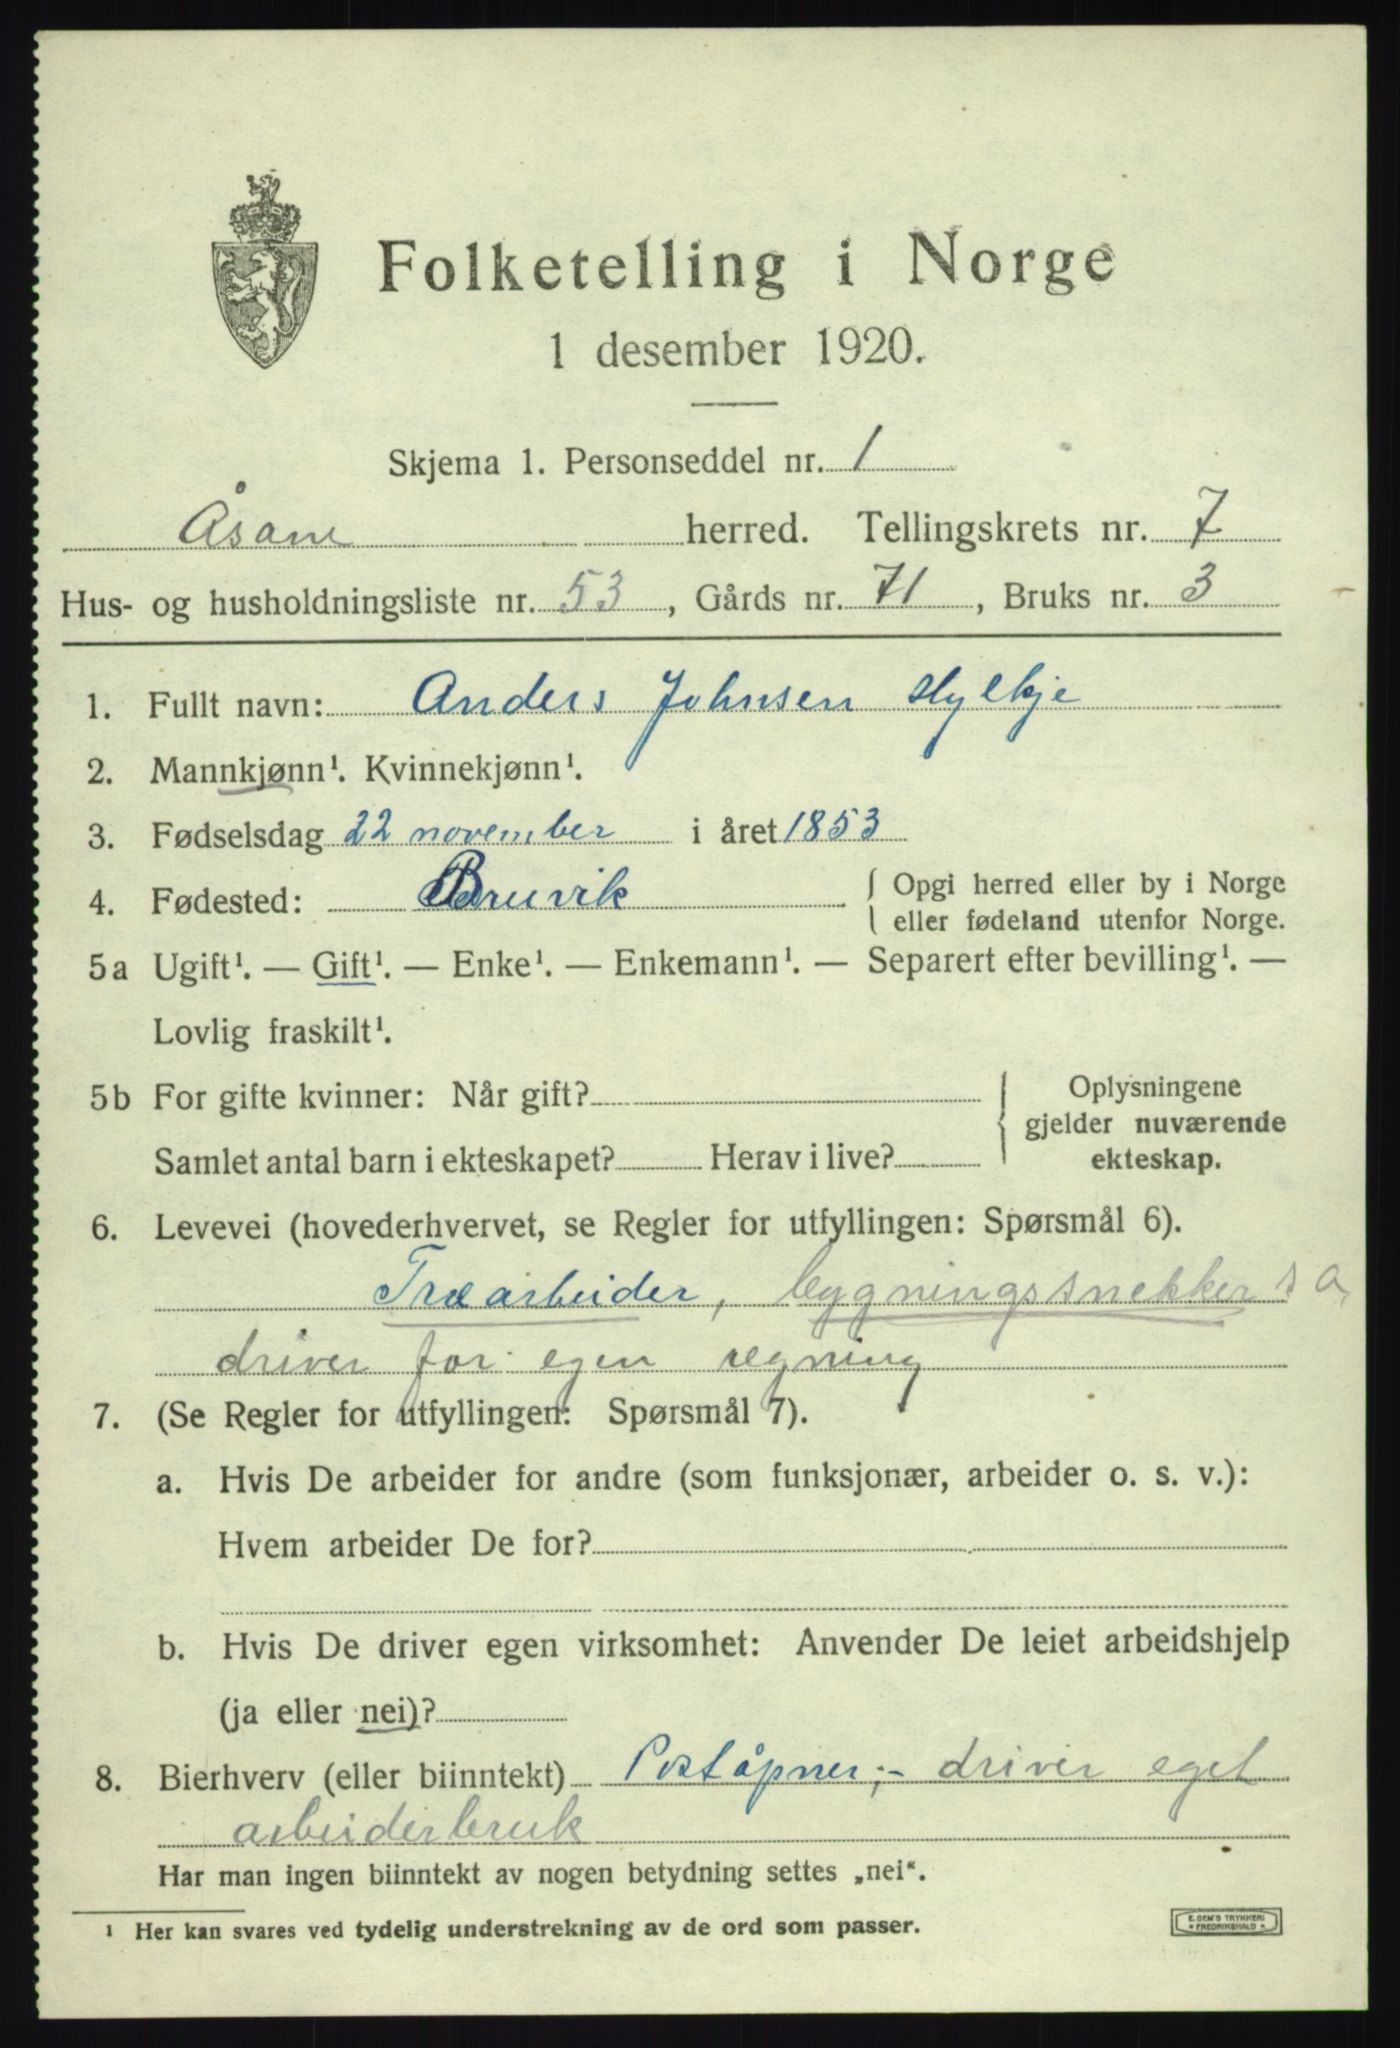 Folketelling i Norge
1 desember 1920.
Skjema 1. Personseddel nr. 1
Åsane herred. Tellingskrets nr. 7
Hus- og husholdningsliste nr. 53, Gårds nr. 71, Bruks nr. 3
1. Fullt navn: Anders Johnsen Hylkje
2. Mannkjønn¹. Kvinnekjønn¹.
3. Fødselsdag 22 november i året 1853
4. Fødested: Bruvik { Opgi herred eller by i Norge
eller fødeland utenfor Norge.
5a Ugift¹. — Gift¹. — Enke¹. — Enkemann¹. — Separert efter bevilling¹. —
Lovlig fraskilt¹.
5b For gifte kvinner: Når gift? { Oplysningene
gjelder nuværende
Samlet antal barn i ekteskapet? Herav i live? ekteskap.
6. Levevei (hovederhvervet, se Regler for utfyllingen: Spørsmål 6).
Træarbeider, bygningssnekker s a,
driver for egen regning
7. (Se Regler for utfyllingen: Spørsmål 7).
a. Hvis De arbeider for andre (som funksjonær, arbeider o. s. v.):
Hvem arbeider De for?
b. Hvis De driver egen virksomhet: Anvender De leiet arbeidshjelp
(ja eller nei)?
8. Bierhverv (eller biinntekt) Poståpner;- driver eget
arbeiderbruk
Har man ingen biinntekt av nogen betydning settes „nei“.
¹ Her kan svares ved tydelig understrekning av de ord som passer.
E. SEM'S TRYKKERI
* FREDRIKSHALD *